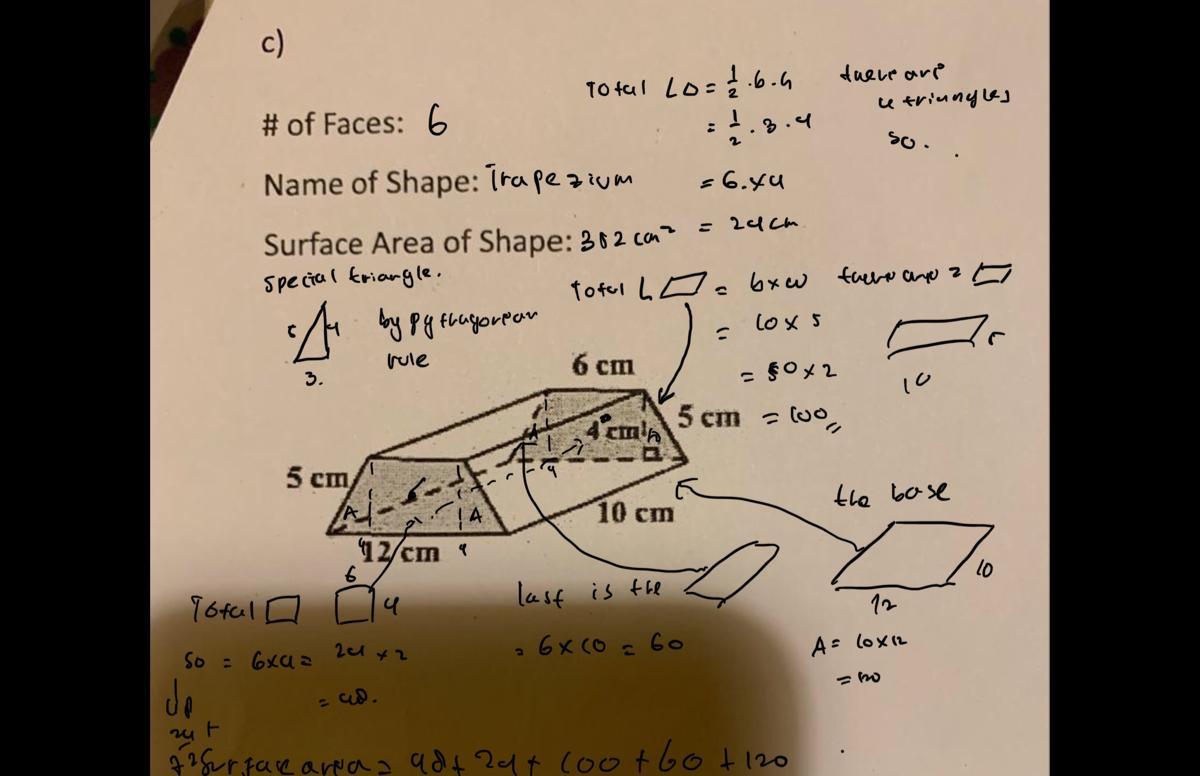 c)
Total L△ = 1/2 · 6 · 4 there are
# of Faces: 6 = 1/2 · 3 · 4 4 triangles
so.
Name of Shape: Trapezium = 6 . x4
Surface Area of Shape: 352 cm² = 24 cm
special triangle.
Total L▱ = b x w there are 2 ▱
5 4 by pythagorean = 10 x 5
3. rule
6 cm = 50 x 2 10 5
4 cm A 5 cm = 100
A
5 cm
A A
the base
10 cm
4 12 cm 4
6
Total □ 4 last is the 10
12
so = 6x4 = 24 x 2 = 6 x 10 = 60 A = 10 x 12
= 48. = 120
24 +
Surface area = 48 + 24 + 100 + 60 + 120